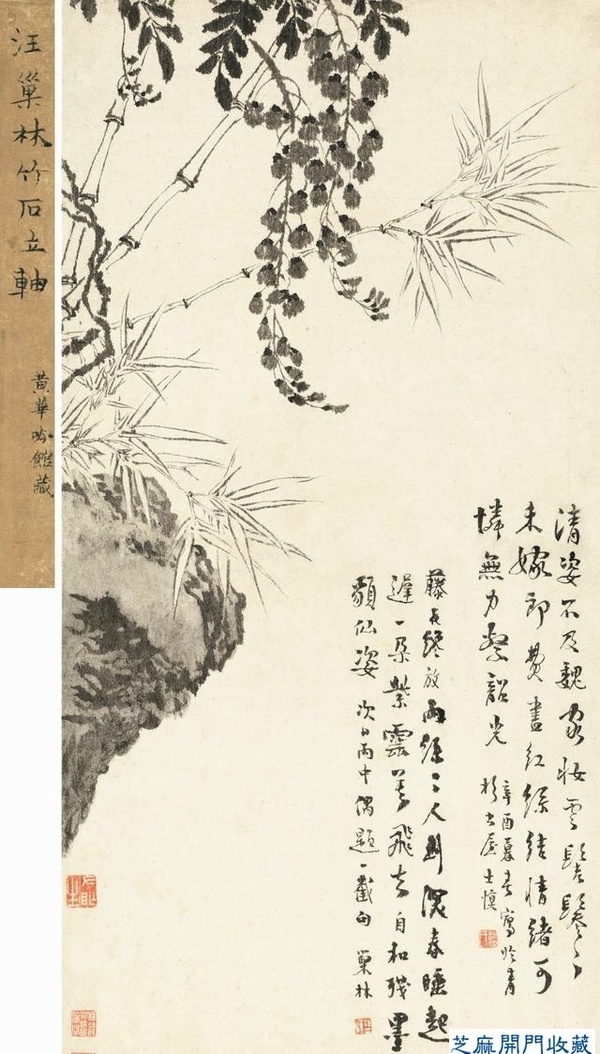 清姿不及魏家妝雲髻鬖〻
未嫁郎費盡紅絲結情緒可
憐無力繫韶光
辛酉暮春寫於青
杉書屋士慎
藤花纔放雨絲〻人到深春睡起
遲一朵紫雲飛去自和殘墨
仙姿 次日雨中偶題一截句 巢林
汪巢林竹石立軸
黃華吟館藏
芝麻開門收藏